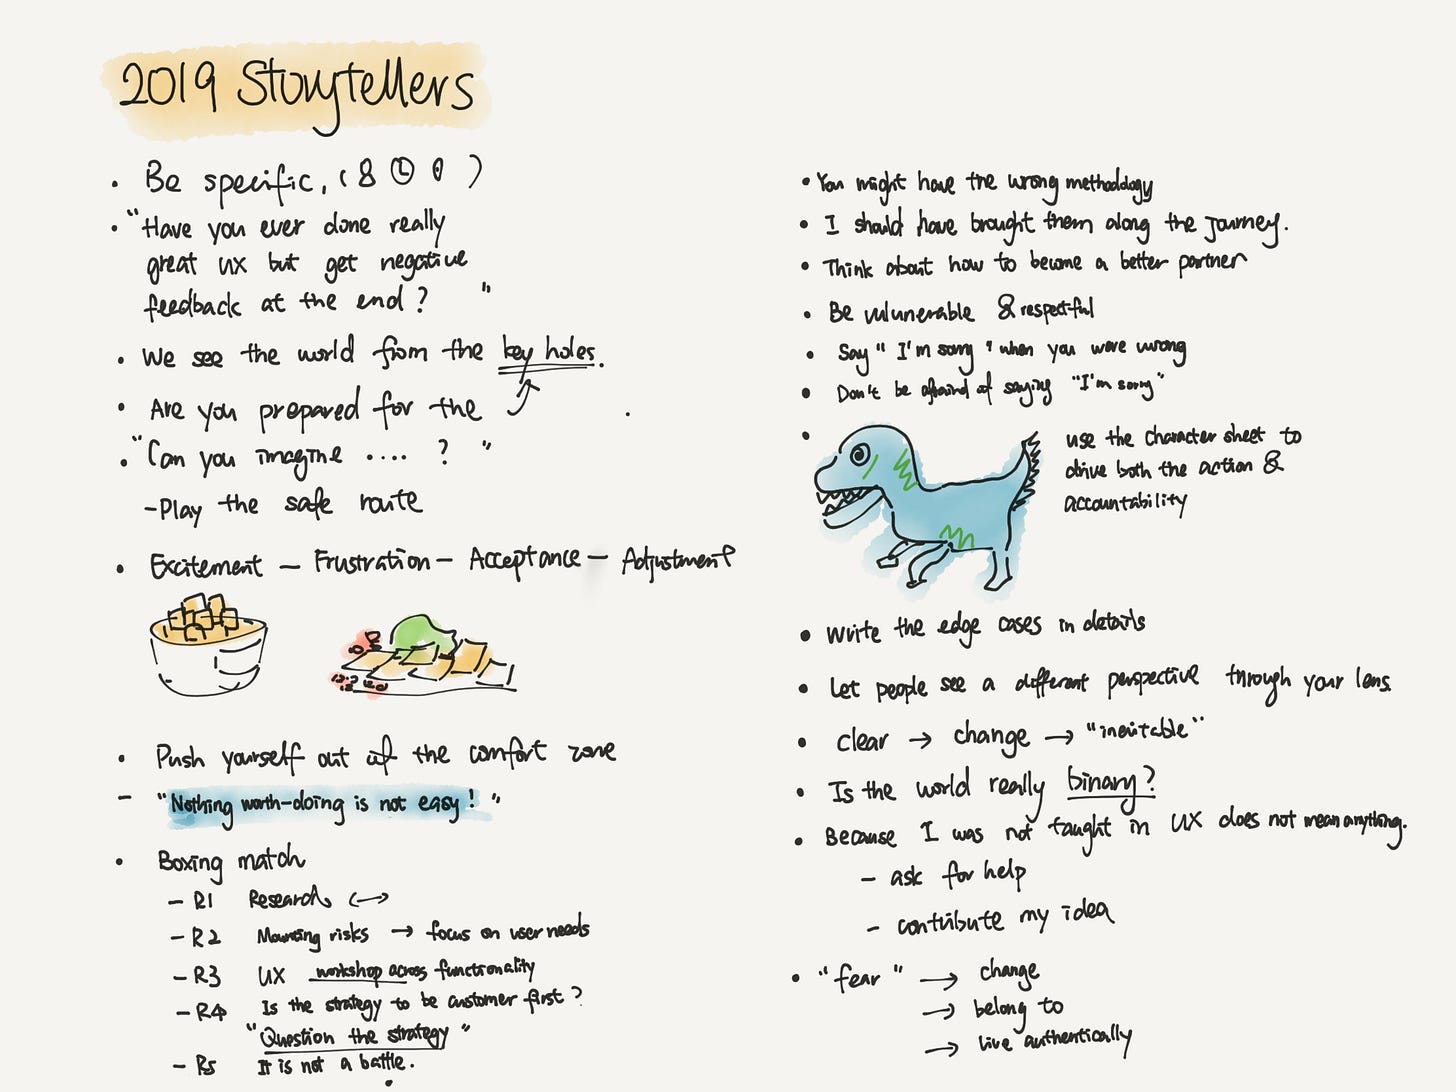 2019 Storytellers
• Be specific, ( )
• "Have you ever done really
great UX but get negative
feedback at the end? "
• We see the world from the key holes.
• Are you prepared for the
• "Can you imagine .... ? "
- Play the safe route
• Excitement — Frustration — Acceptance — Adjustment
• Push yourself out of the comfort zone
- "Nothing worth-doing is not easy! "
• Boxing match
- R1 Research
- R2 Mounting risks → focus on user needs
- R3 UX workshop across functionality
- R4 Is the strategy to be customer first?
"Question the strategy"
- R5 It is not a battle.
• You might have the wrong methodology
• I should have brought them along the journey.
• Think about how to become a better partner
• Be vulunerable & respectful
• Say "I'm sorry" when you were wrong
• Don't be afraind of saying "I'm sorry"
• use the character sheet to
drive both the action &
accountability
• Write the edge cases in details
• Let people see a different perspective through your lens.
• clear → change → "inevitable"
• Is the world really binary?
• Because I was not taught in UX does not mean anything.
- ask for help
- contribute my idea
• "fear" → change
→ belong to
→ live authentically